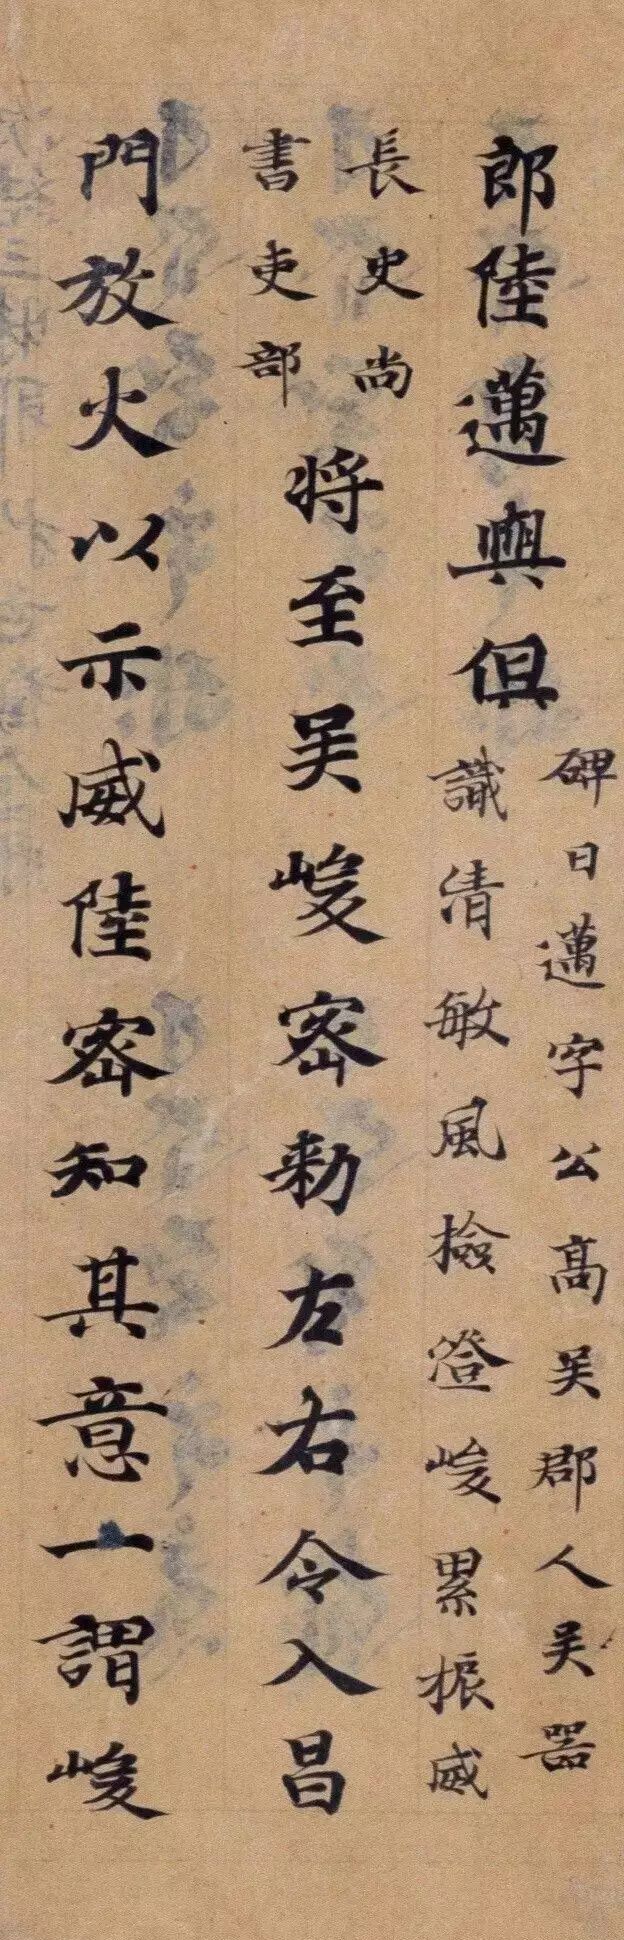 郎陸邁與俱
碑曰邁字公高吴郡人吴器
識清敏風檢澄峻累振威
長史尚
書吏部
將至吴峻密勑左右令入昌
門放火以示威陸密知其意一謂峻